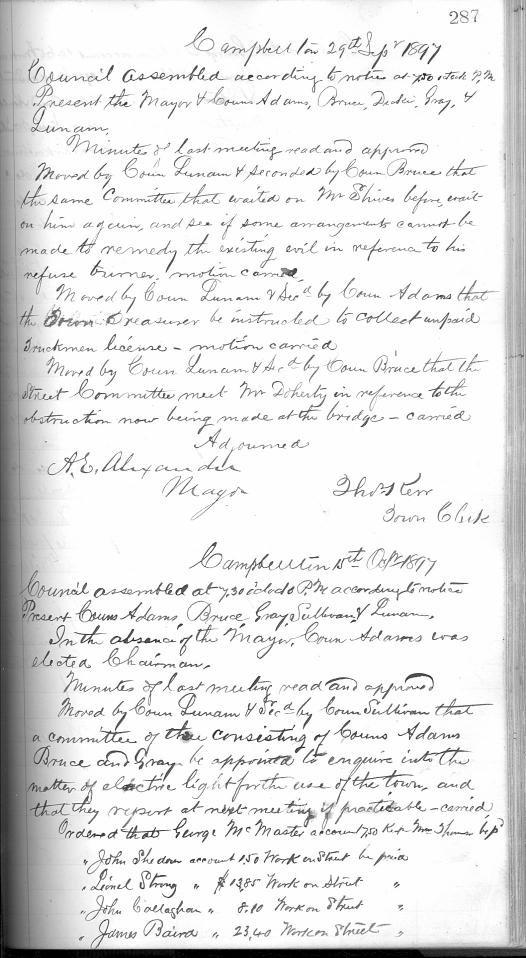 287
Campbellton 29th Sepr 1897
Council assembled according to notice at 7,30 oclock P.M
Present the Mayor & Couns Adams, Bruce, Gray, &
Lunam,
Minutes of last meeting read and approved
Moved by Coun Lunam & seconded by Coun Bruce that
the same Committee that waited on Mr Shives before, wait
on him again, and see if some arrangements cannot be
made to remedy the existing evil in reference to his
refuse burner, motion carried,
Moved by Coun Lunam & Secd by Coun Adams that
the Town Treasurer be instructed to collect unpaid
Truckmen license - motion carried
Moved by Coun Lunam & Secd by Coun Bruce that the
Street Committee meet Mr Doherty in reference to the
obstruction now being made at the bridge - carried
Adjourned
A.E. Alexander
Mayor
Thos Kerr
Town Clerk
Campbellton 15th Octr 1897
Council assembled at 7,30 oclock P.M according to notice
Present Couns Adams, Bruce, Gray, Sullivan, & Lunam,
In the absence of the Mayor, Coun Adams was
elected Chairman,
Minutes of last meeting read and approved
Moved by Coun Lunam & Secd by Coun Sullivan that
a committee of three consisting of Couns Adams
Bruce and Gray be appointed to enquire into the
matter of electric light for the use of the town, and
that they report at next meeting if practicable - carried
Ordered that George McMaster account 7,50 Mrs
" John account 1,50 Work on Street be paid
" Lionel Strong " $13,85 Work on Street "
" John Callaghan " 8.10 Work on Street "
" James Baird " 23,40 Work on Street "